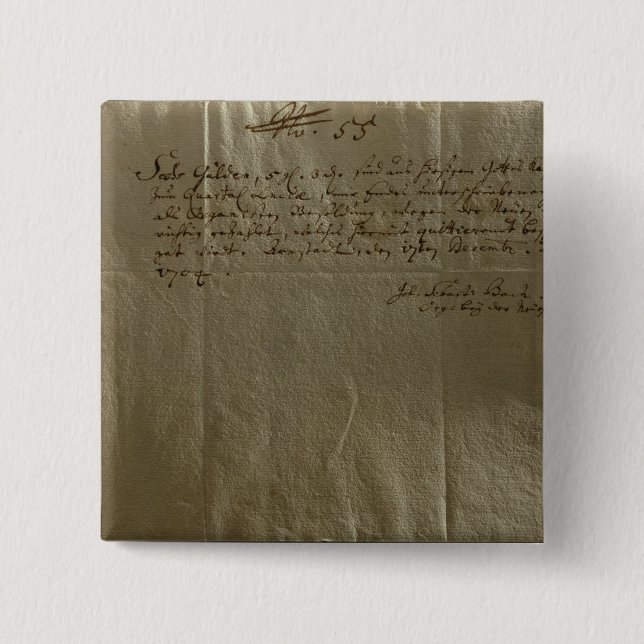 No. 55
Sechs Gülden, 5 gl. 3 d. sind aus hiesigem Gottes Ka
zum Quartal Luciæ, mir Endes unterschriebenen
als Organisten Besoldung, wegen der Neuen
richtig gezahlet, welches hiermit quittierend be
get wird. Arnstadt, den Decembr.
1704.
Joh. Sebasti. Bach.
Org: bey der Neuen